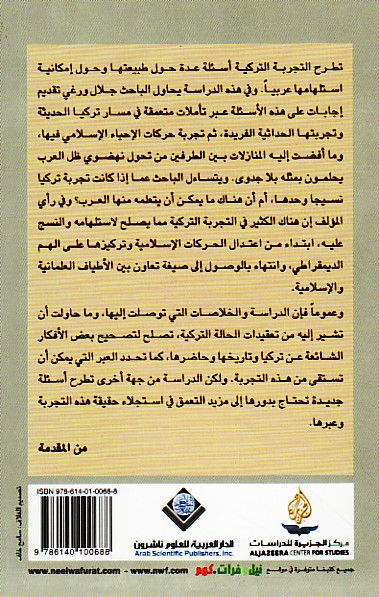 تطرح التجربة التركية أسئلة عدة حول طبيعتها وحول إمكانية
استلهامها عربياً. وفي هذه الدراسة يحاول الباحث جلال ورغي تقديم
إجابات على هذه الأسئلة عبر تأملات متعمقة في مسار تركيا الحديثة
وتجربتها الحداثية الفريدة، ثم تجربة حركات الإحياء الإسلامي فيها،
وما أفضت إليه المنازلات بين الطرفين من تحول نهضوي ظل العرب
يحلمون بمثله بلا جدوى. ويتساءل الباحث عما إذا كانت تجربة تركيا
نسيجا وحدها، أم أن هناك ما يمكن أن يتعلمه منها العرب؟ وفي رأي
المؤلف إن هناك الكثير في التجربة التركية مما يصلح لاستلهامه والنسج
عليه، ابتداء من اعتدال الحركات الإسلامية وتركيزها على الهم
الديمقراطي، وانتهاء بالوصول إلى صيغة تعاون بين الأطياف العلمانية
والإسلامية.
وعموماً فإن الدراسة والخلاصات التي توصلت إليها، وما حاولت أن
تشير إليه من تعقيدات الحالة التركية، تصلح لتصحيح بعض الأفكار
الشائعة عن تركيا وتاريخها وحاضرها، كما تحدد العبر التي يمكن أن
تستقى من هذه التجربة. ولكن الدراسة من جهة أخرى تطرح أسئلة
جديدة تحتاج بدورها إلى مزيد التعمق في استجلاء حقيقة هذه التجربة
وعبرها.
من المقدمة
تصميم الغلاف: سامح خلف
ISBN 978-614-01-0068-8
9 786140 100688
الدار العربية للعلوم ناشرون
Arab Scientific Publishers, Inc.
مركز الجزيرة للدراسات
ALJAZEERA CENTER FOR STUDIES
جميع كتبنا متوفرة في موقع نيل وفرات.كوم www.neelwafurat.com - www.nwf.com